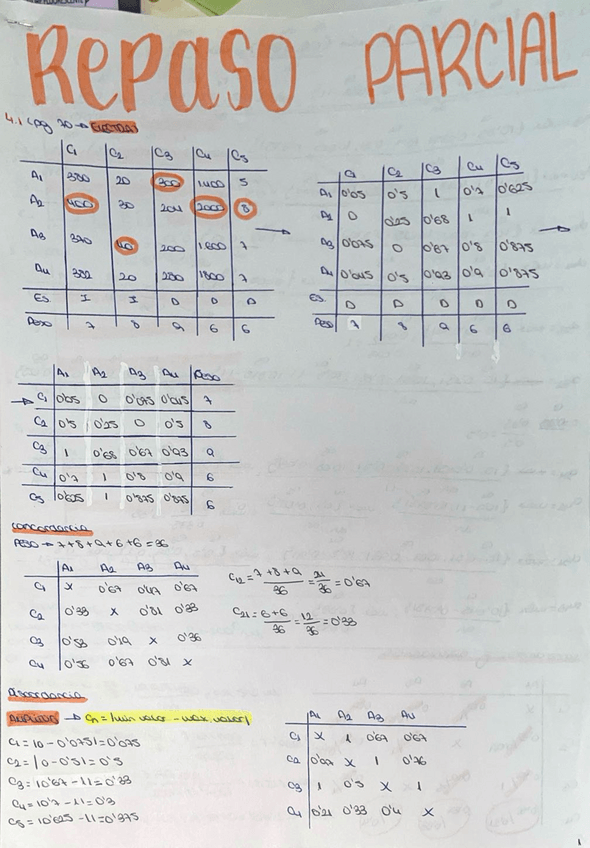 REPASO PARCIAL
4.1 (pg 70 → ELECTRAS
C1 C2 C3 C4 C5
A1 380 20 300 1400 5
A2 400 30 204 2000 8
A3 370 40 200 1600 7
A4 382 20 280 1800 7
Es. I I D D D
Peso 7 8 9 6 6
C1 C2 C3 C4 C5
A1 0'05 0'5 1 0'7 0'625
A2 0 0'25 0'68 1 1
A3 0'075 0 0'67 0'8 0'875
A4 0'045 0'5 0'93 0'9 0'875
Es. D D D D D
Peso 7 8 9 6 6
A1 A2 A3 A4 Peso
→ C1 0'05 0 0'075 0'045 7
C2 0'5 0'25 0 0'5 8
C3 1 0'68 0'67 0'93 9
C4 0'7 1 0'8 0'9 6
C5 0'625 1 0'875 0'875 6
concordancia
Peso → 7+8+9+6+6=36
A1 A2 A3 A4
C1 X 0'67 0'47 0'67
C2 0'33 X 0'31 0'33
C3 0'53 0'19 X 0'36
C4 0'56 0'67 0'31 X
C12 = 7+8+9/36 = 24/36 = 0'67
C21 = 6+6/36 = 12/36 = 0'33
Discordancia
→ Cn = |min valor - max. valor|
C1 = |0 - 0'075| = 0'075
C2 = |0 - 0'5| = 0'5
C3 = |0'67 - 1| = 0'33
C4 = |0'7 - 1| = 0'3
C5 = |0'625 - 1| = 0'375
A1 A2 A3 A4
C1 X 1 0'67 0'67
C2 0'97 X 1 0'76
C3 1 0'5 X 1
C4 0'21 0'33 0'4 X
1